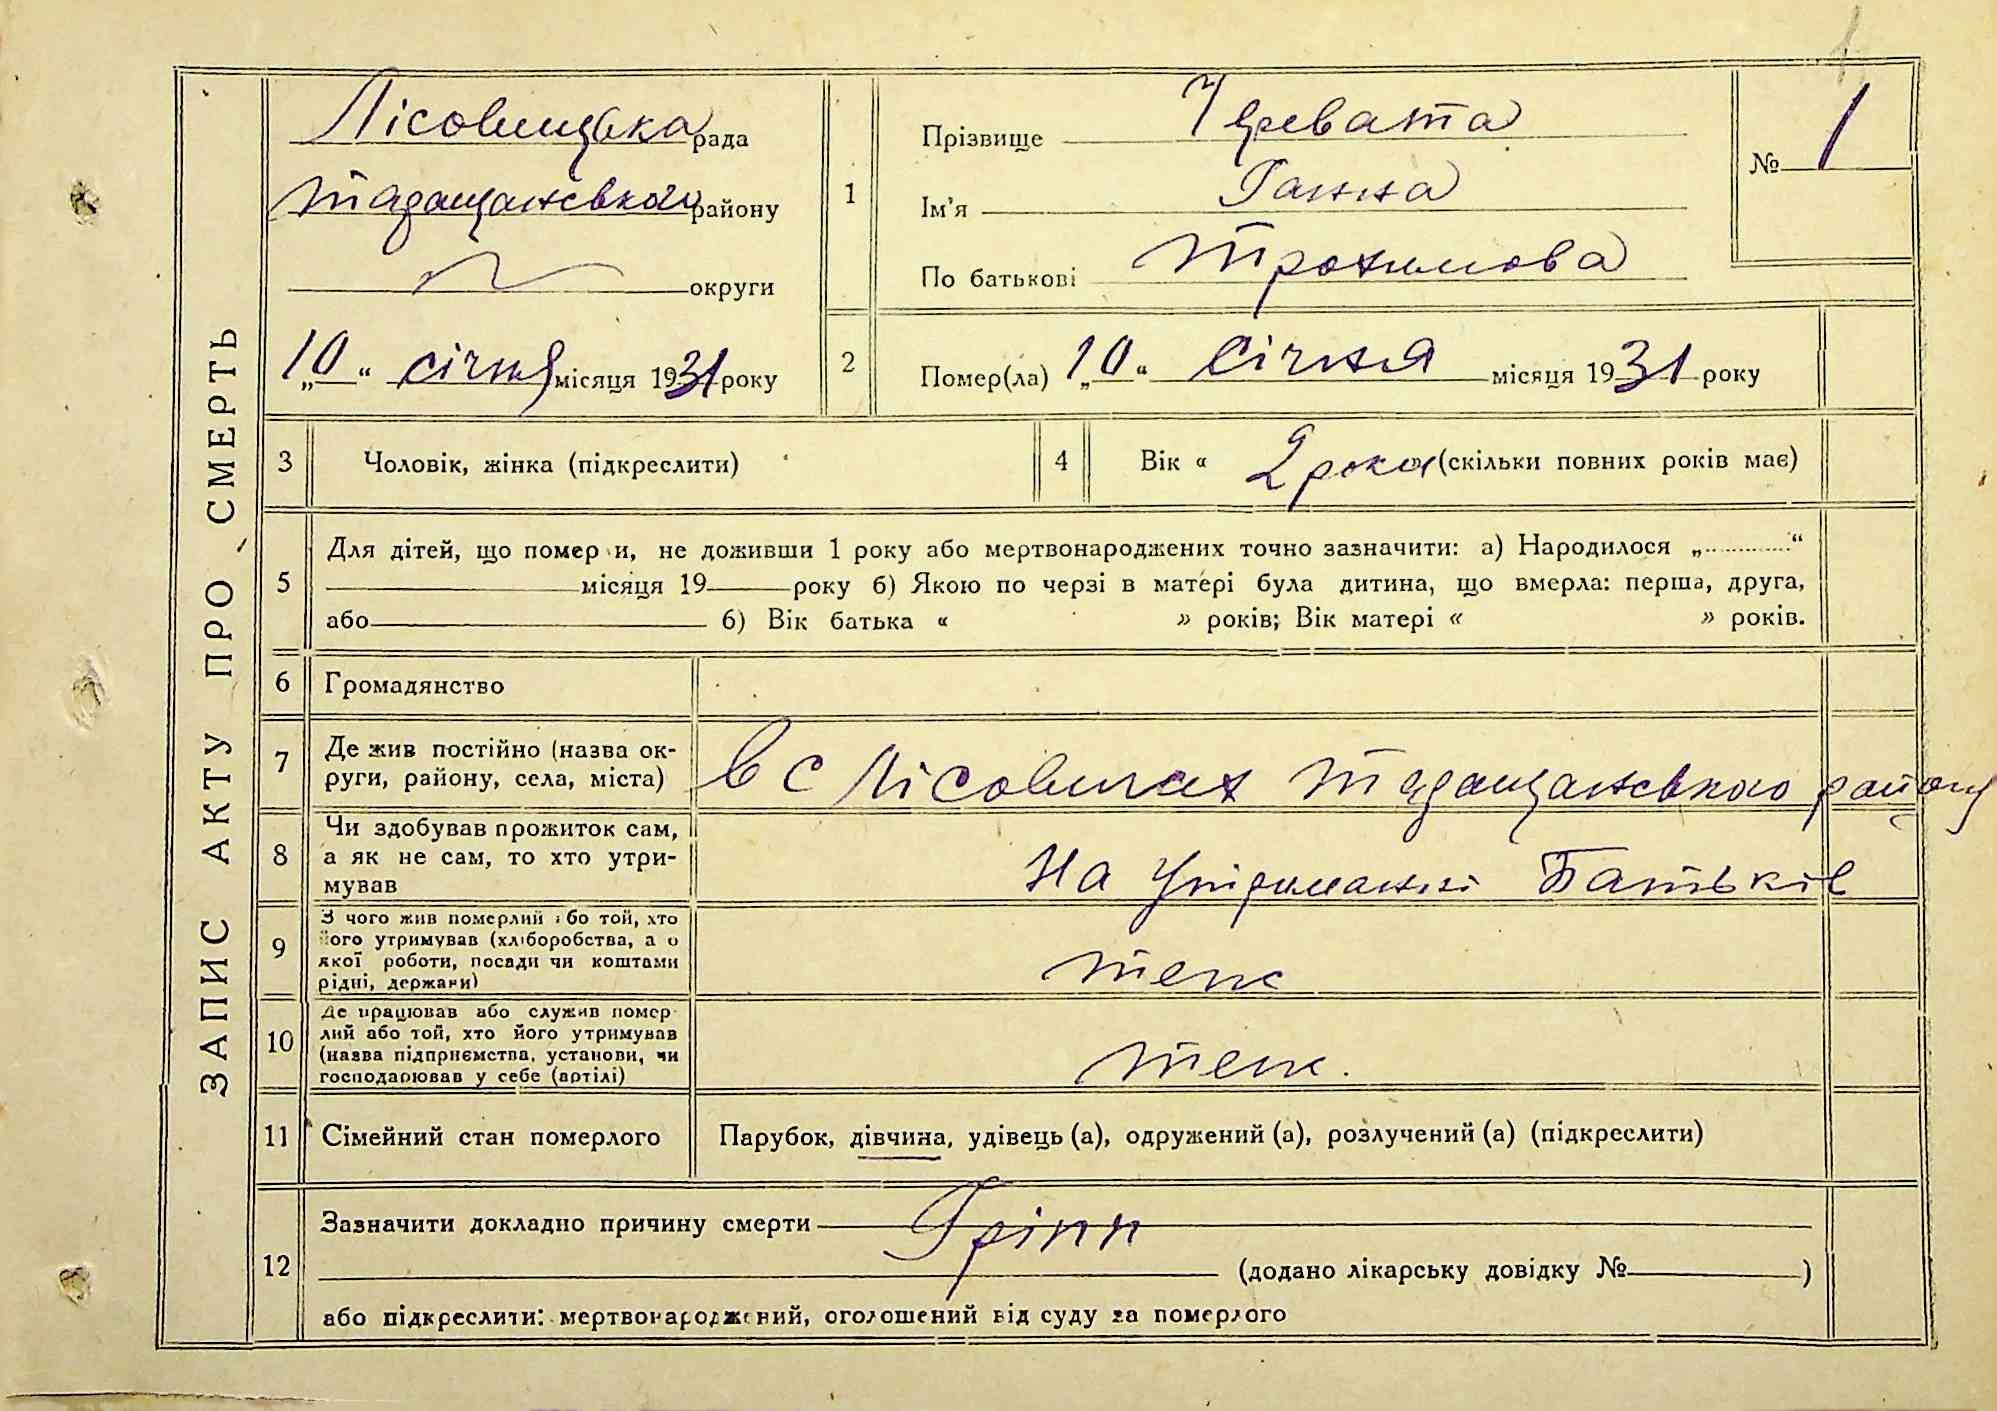 ЗАПИС АКТУ ПРО СМЕРТЬ
Лісовицька рада
Таращанського району
округи
„10“ січня місяця 1931 року
1
Прізвище Черевата
Ім'я Ганна
По батькові Трохимова
№ 1
2
Помер(ла) „10“ Січня місяця 1931 року
3
Чоловік, жінка (підкреслити)
4
Вік « 2 роки » (скільки повних років має)
5
Для дітей, що померли, не доживши 1 року або мертвонароджених точно зазначити: а) Народилося „ “
місяця 19 року б) Якою по черзі в матері була дитина, що вмерла: перша, друга,
або б) Вік батька « » років; Вік матері « » років.
6
Громадянство
7
Де жив постійно (назва ок-
руги, району, села, міста)
в с Лісовичах Таращанського району
8
Чи здобував прожиток сам,
а як не сам, то хто утри-
мував
На Утриманні Батьків
9
З чого жив померлий або той, хто
його утримував (хліборобства, а о
якої роботи, посади чи коштами
рідні, держави)
теж
10
Де працював або служив помер-
лий або той, хто його утримував
(назва підприємства, установи, чи
господарював у себе (артілі)
теж.
11
Сімейний стан померлого
Парубок, дівчина, удівець (а), одружений (а), розлучений (а) (підкреслити)
12
Зазначити докладно причину смерти Грипп
(додано лікарську довідку № )
або підкреслити: мертвонароджений, оголошений від суду за померлого